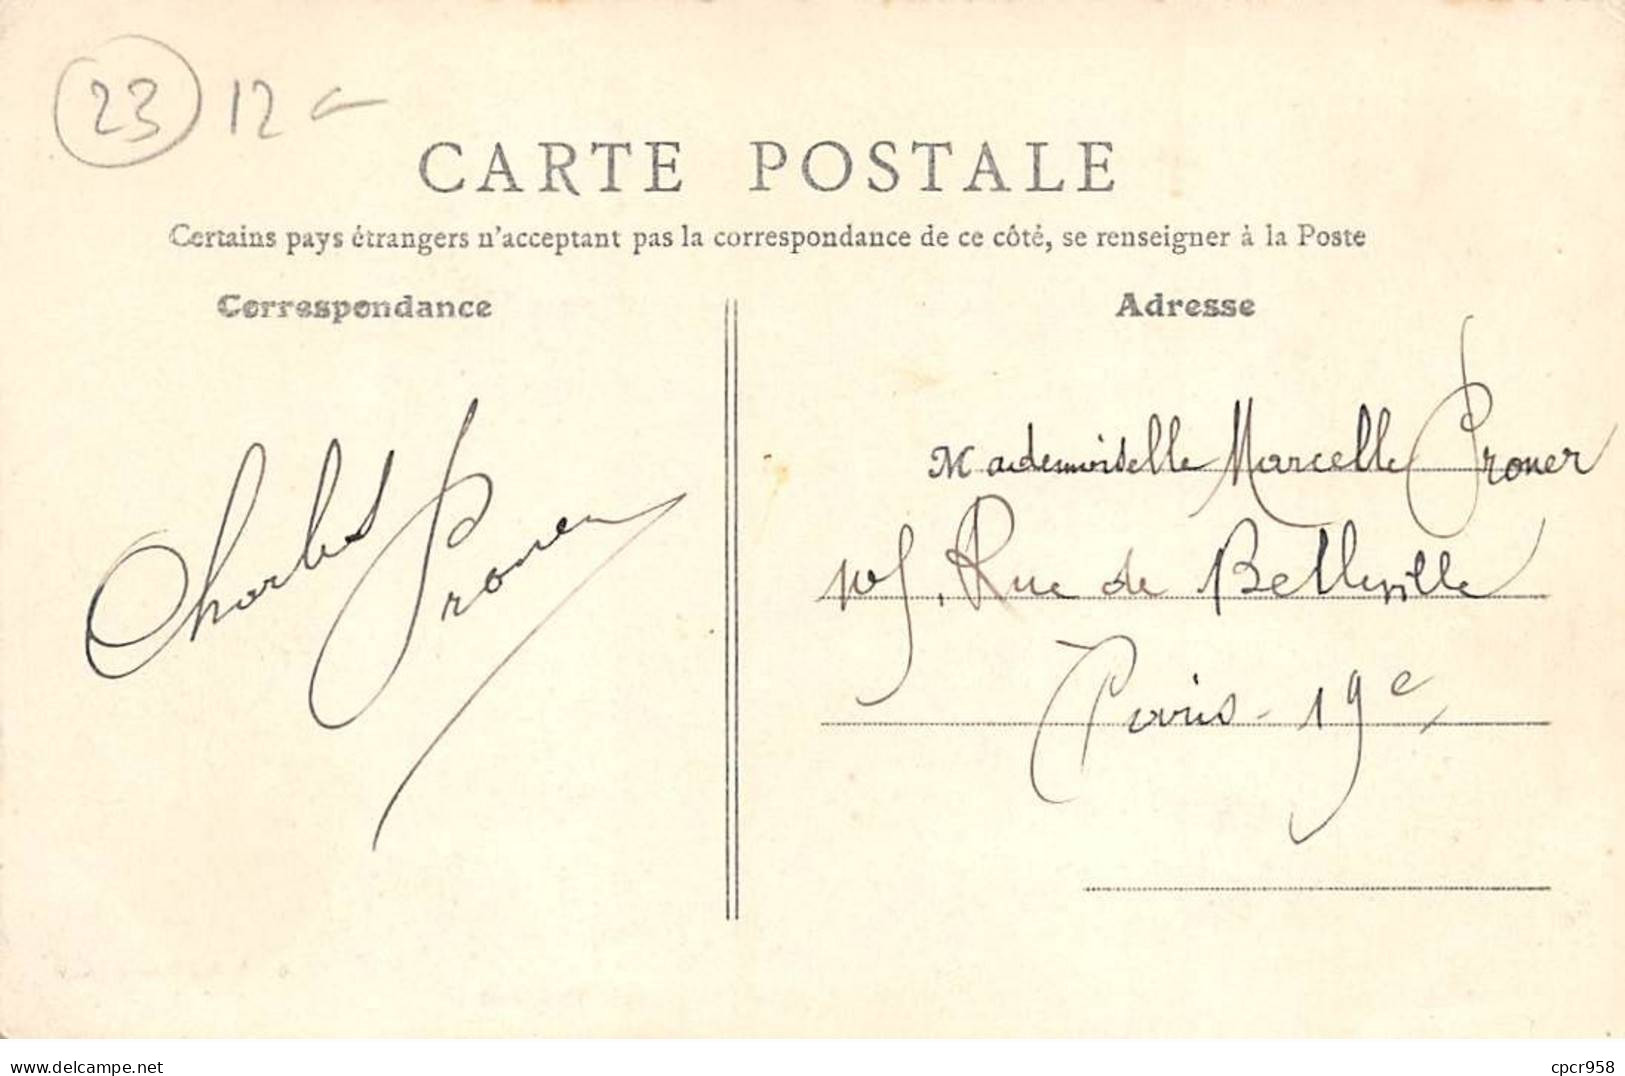 23 12 €
CARTE POSTALE
Certains pays étrangers n'acceptant pas la correspondance de ce côté, se renseigner à la Poste
Correspondance
Adresse
Charles Proner
Mademoiselle Marcelle Proner
Rue de Belleville
Paris - 19e
www.delcampe.net
cpcr958